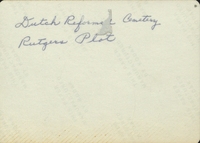 Dutch Reformed Cemetery
Rutgers Plot